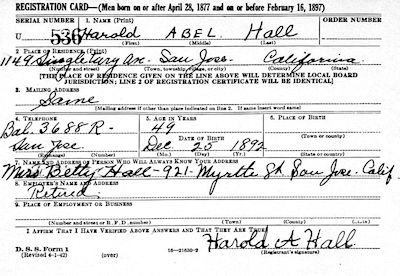 REGISTRATION CARD—(Men born on or after April 28, 1877 and on or before February 16, 1897)
SERIAL NUMBER 1. NAME (Print) ORDER NUMBER
U 536 Harold ABEL Hall
(First) (Middle) (Last)
2. PLACE OF RESIDENCE (Print)
1149 Singletary Av. San Jose California
(Number and street) (Town, township, village, or city) (County) (State)
[THE PLACE OF RESIDENCE GIVEN ON THE LINE ABOVE WILL DETERMINE LOCAL BOARD
JURISDICTION; LINE 2 OF REGISTRATION CERTIFICATE WILL BE IDENTICAL]
3. MAILING ADDRESS
Same
[Mailing address if other than place indicated on line 2. If same insert word same]
4. TELEPHONE 5. AGE IN YEARS 6. PLACE OF BIRTH
Bal. 3688 R- 49
DATE OF BIRTH (Town or county)
San Jose Dec 25 1892
(Exchange) (Number) (Mo.) (Day) (Yr.) (State or country)
7. NAME AND ADDRESS OF PERSON WHO WILL ALWAYS KNOW YOUR ADDRESS
Miss Betty Hall-921-Myrtle St San Jose Calif.
8. EMPLOYER'S NAME AND ADDRESS
Retired
9. PLACE OF EMPLOYMENT OR BUSINESS
(Number and street or R. F. D. number) (Town) (County) (State)
I AFFIRM THAT I HAVE VERIFIED ABOVE ANSWERS AND THAT THEY ARE TRUE.
D. S. S. Form 1 16—21630-2 Harold A Hall
(Revised 4-1-42) (over) (Registrant's signature)